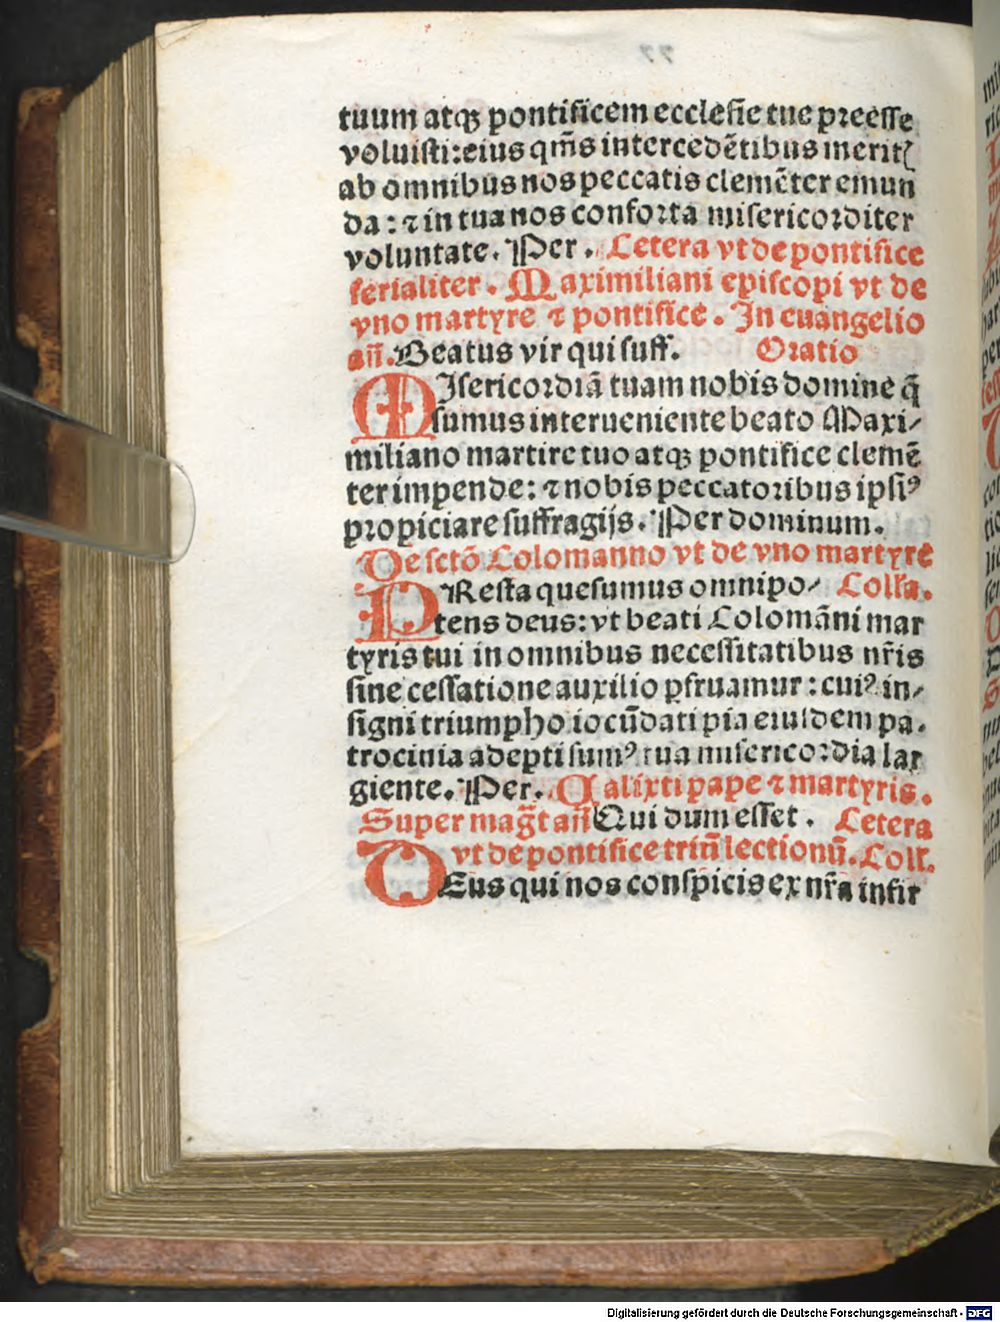 tuum atqꝫ pontificem ecclesie tue preesse
voluisti: eius qm̄s intercedētibus meritꝭ
ab omnibus nos peccatis clemēter emun
da: ⁊ in tua nos conforta misericorditer
voluntate. Per. Cetera vt de pontifice
ferialiter. Maximiliani episcopi vt de
vno martyre ⁊ pontifice. In euangelio
an̄. Beatus vir qui suff. Oratio
MIsericordiā tuam nobis domine q̄
sumus interueniente beato Maxi-
miliano martire tuo atqꝫ pontifice clemē
ter impende: ⁊ nobis peccatoribus ipsiꝰ
propiciare suffragijs. Per dominum.
De sctō Colomanno vt de vno martyre
PResta quesumus omnipo- Coll'a.
tens deus: vt beati Colomāni mar
tyris tui in omnibus necessitatibus nr̄is
sine cessatione auxilio ꝑfruamur: cuiꝰ in-
signi triumpho iocūdati pia eiusdem pa-
trocinia adepti sumꝰ tua misericordia lar
giente. Per. Calixti pape ⁊ martyris.
Super mag̃t an̄ Qui dum esset. Cetera
vt de pontifice triū lectionū. Coll'.
DEus qui nos conspicis ex nr̄a infir
Digitalisierung gefördert durch die Deutsche Forschungsgemeinschaft - DFG